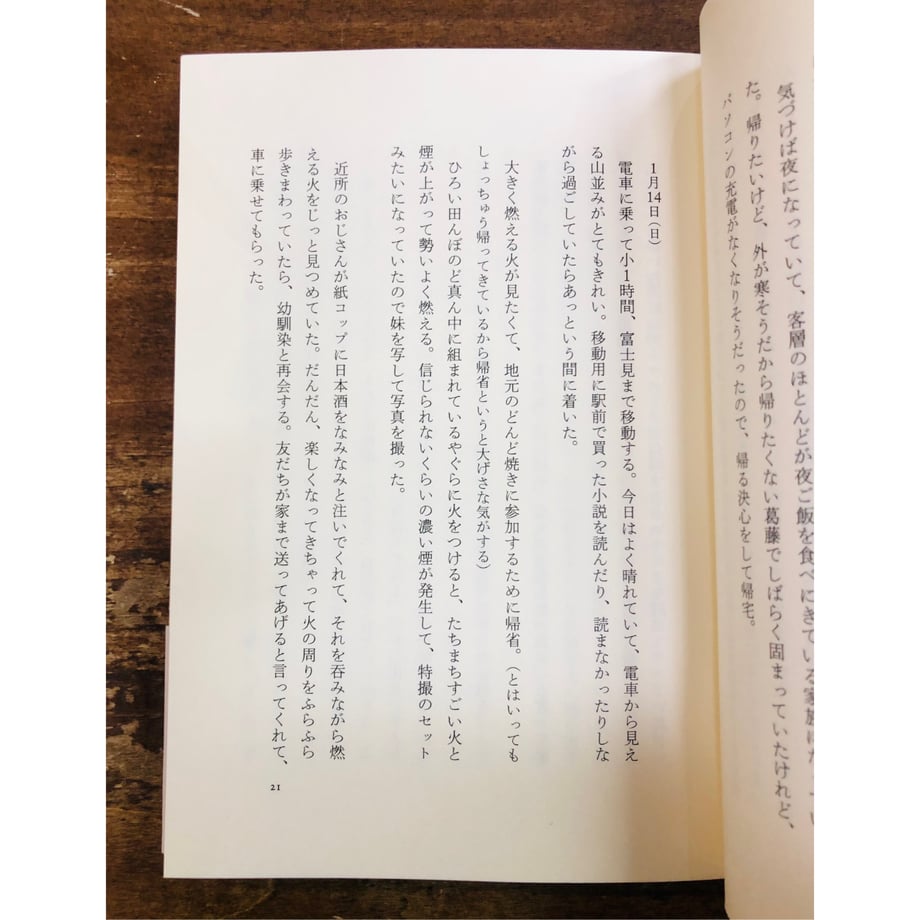 気づけば夜になっていて、客層のほとんどが夜ご飯を食べにきている家族
た。帰りたいけど、外が寒そうだから帰りたくない葛藤でしばらく固まっていたけれど、
パソコンの充電がなくなりそうだったので、帰る決心をして帰宅。
1月14日（日）
電車に乗って小1時間、富士見まで移動する。今日はよく晴れていて、電車から見え
る山並みがとてもきれい。移動用に駅前で買った小説を読んだり、読まなかったりしな
がら過ごしていたらあっという間に着いた。
大きく燃える火が見たくて、地元のどんど焼きに参加するために帰省。（とはいっても
しょっちゅう帰ってきているから帰省というと大げさな気がする）
ひろい田んぼのど真ん中に組まれているやぐらに火をつけると、たちまちすごい火と
煙が上がって勢いよく燃える。信じられないくらいの濃い煙が発生して、特撮のセット
みたいになっていたので妹を写して写真を撮った。
近所のおじさんが紙コップに日本酒をなみなみと注いでくれて、それを呑みながら燃
える火をじっと見つめていた。だんだん、楽しくなってきちゃって火の周りをふらふら
歩きまわっていたら、幼馴染と再会する。友だちが家まで送ってあげると言ってくれて、
車に乗せてもらった。
21